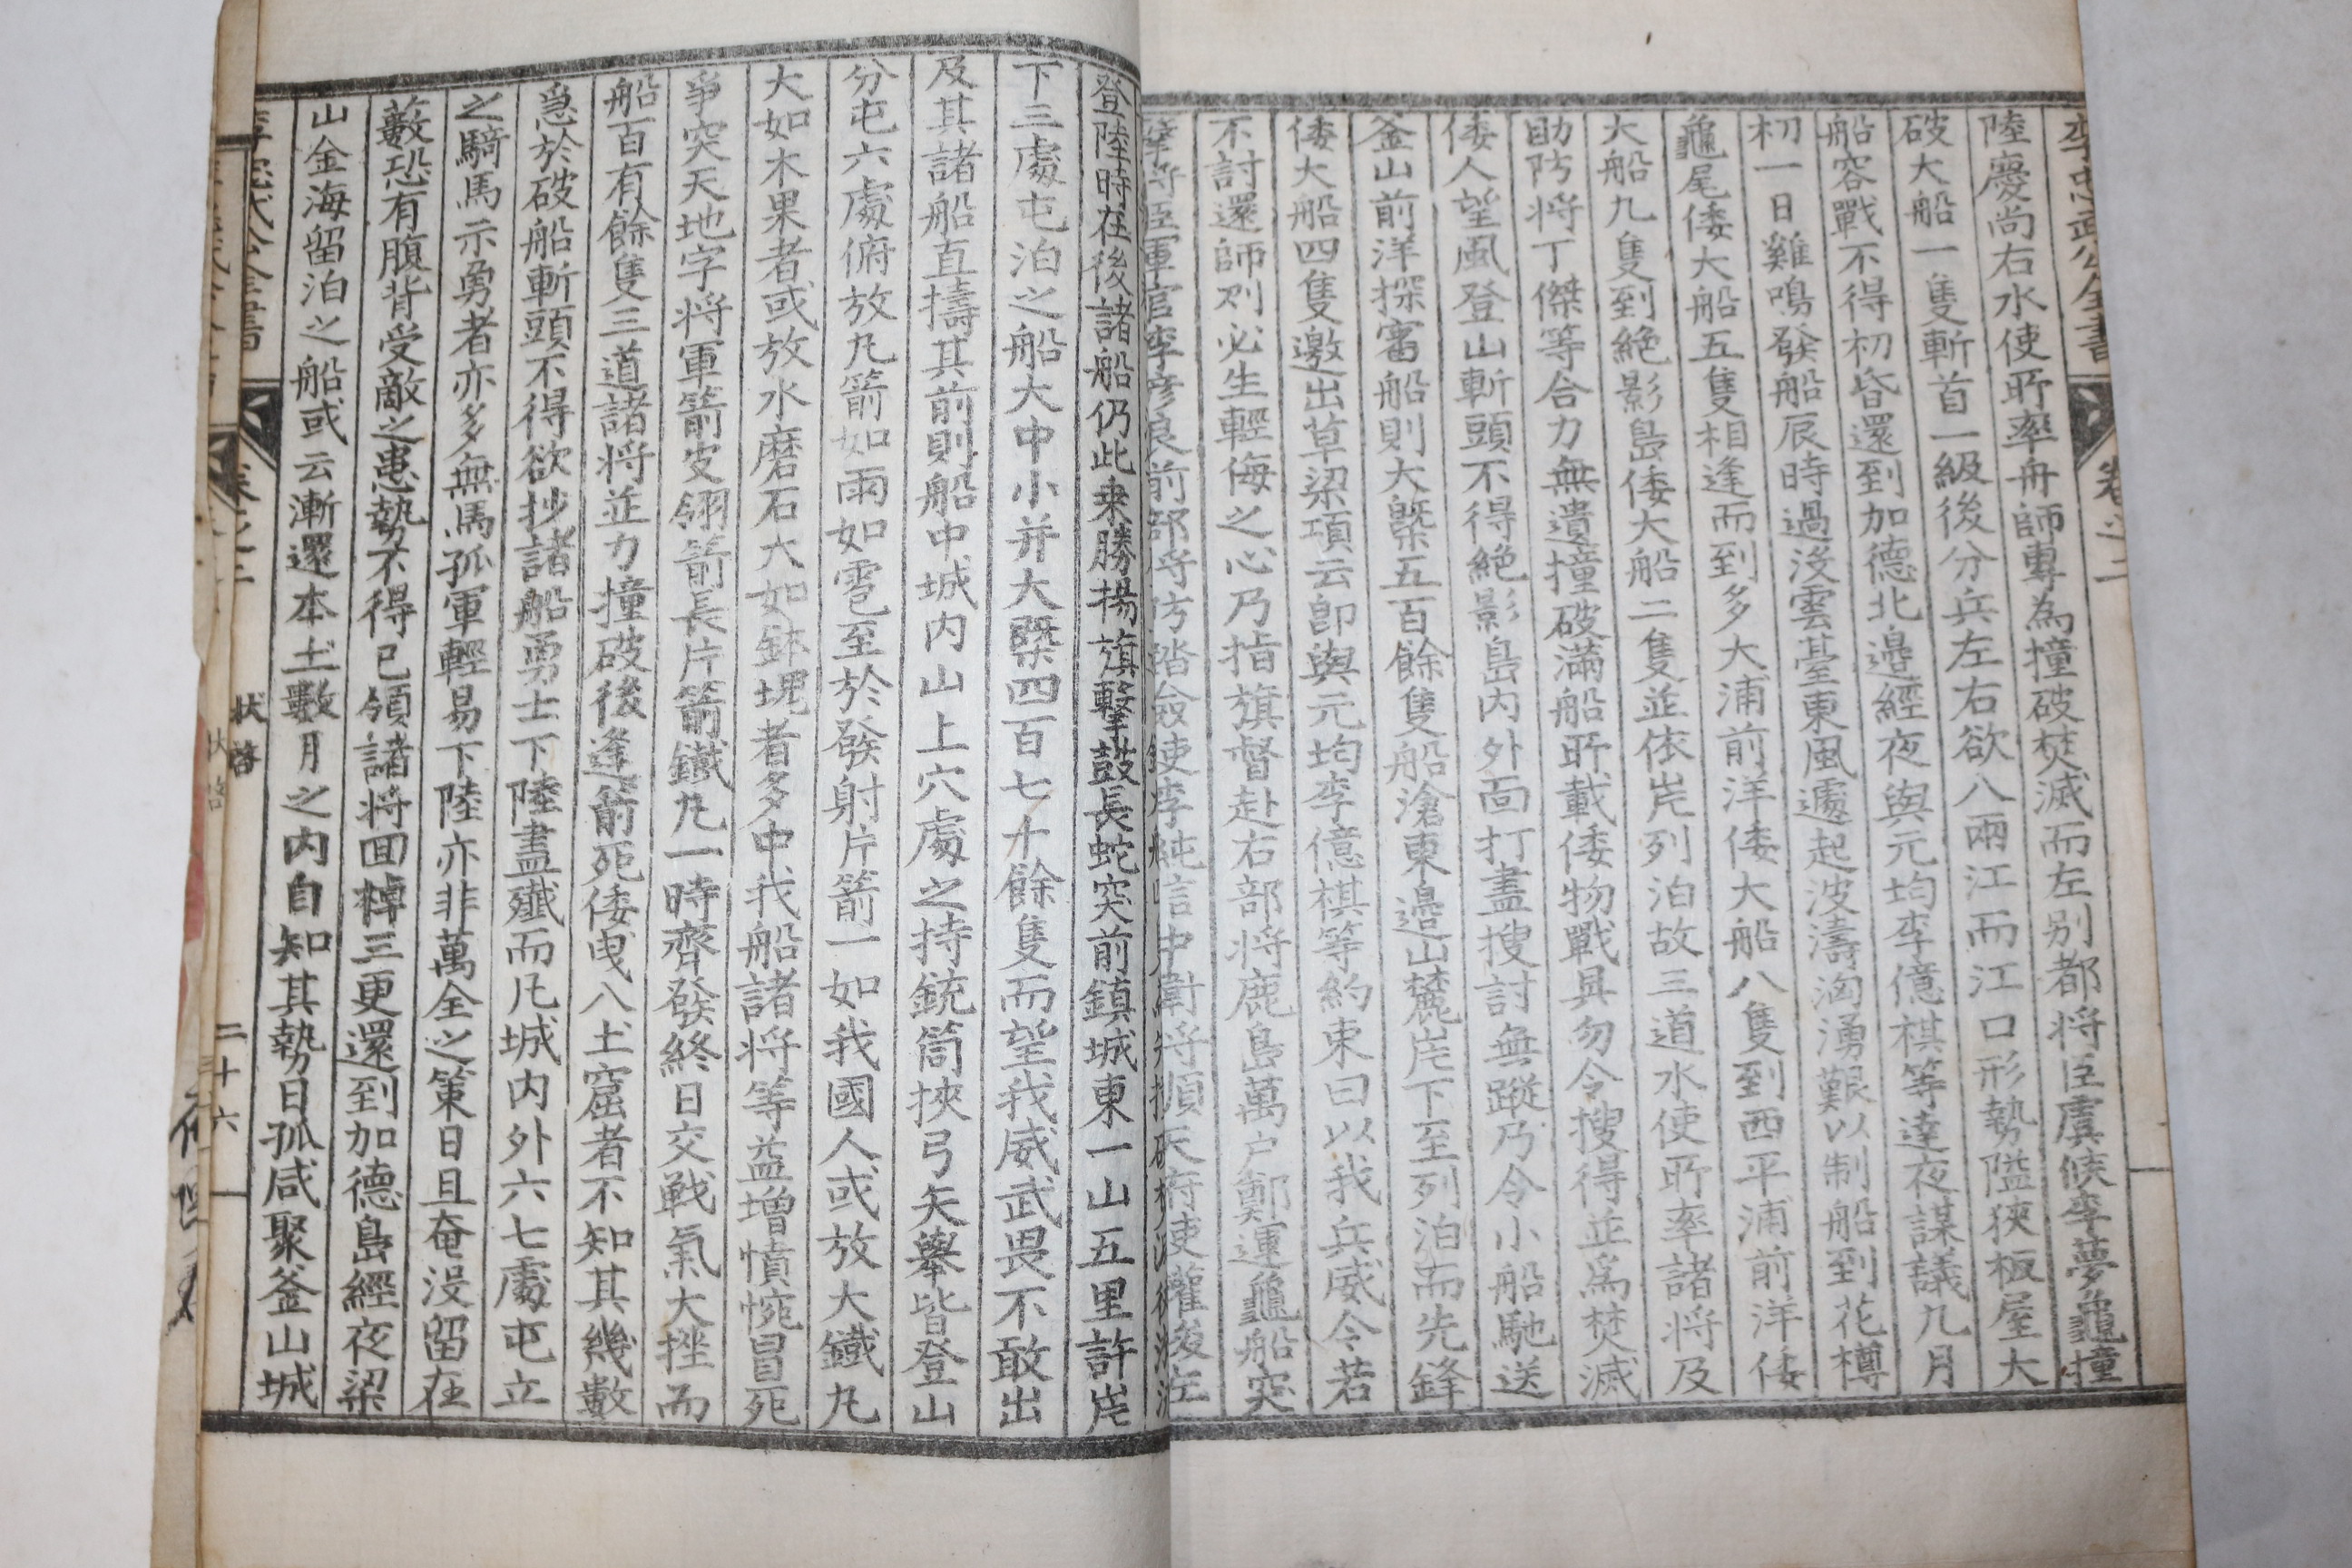 李忠武公全書
卷之二
陸慶尙右水使所率舟師專為撞破焚滅而左別都將臣虞候李夢龜撞
破大船一隻斬首一級後分兵左右欲入兩江而江口形勢隘狹板屋大
船容戰不得初昏還到加德北邊經夜與元均李億祺等達夜謀議九月
初一日雞鳴發船辰時過沒雲臺東風遽起波濤洶湧艱以制船到花樽
龜尾倭大船五隻相逢而到多大浦前洋倭大船八隻到西平浦前洋倭
大船九隻到絶影島倭大船二隻並依岸列泊故三道水使所率諸將及
助防將丁傑等合力無遺撞破滿船所載倭物戰具勿令搜得並爲焚滅
倭人望風登山斬頭不得絶影島内外面打盡搜討無蹤乃令小船馳送
釜山前洋探審船則大槩五百餘隻船滄東邊山麓岸下至列泊而先鋒
倭大船四隻邀出草梁項云卽與元均李億祺等約束曰以我兵威今若
不討還師則必生輕侮之心乃指旗督赴右部將鹿島萬戶鄭運龜船突
前部將防踏僉使李純信中衛將順天府使權俊左
登陸時在後諸船仍此乗勝揚旗擊鼓長蛇突前鎮城東一山五里許岸
下三處屯泊之船大中小并大槩四百七十餘隻而望我威武畏不敢出
及其諸船直擣其前則船中城内山上穴處之持銃筒挾弓矢擧皆登山
分屯六處俯放丸箭如雨如雹至於發射片箭一如我國人或放大鐵丸
大如木果者或放水磨石大如鉢塊者多中我船諸將等益增憤惋冒死
爭突天地字將軍箭皮翎箭長片箭鐵丸一時齊發終日交戰氣大挫而
船百有餘隻三道諸將並力撞破後逢箭死倭曳入土窟者不知其幾數
急於破船斬頭不得欲抄諸船勇士下陸盡殲而凡城内外六七處屯立
之騎馬示勇者亦多無馬孤軍輕易下陸亦非萬全之策日且奄没留在
藪恐有腹背受敵之患勢不得已領諸將回棹三更還到加德島經夜梁
山金海留泊之船或云漸還本土數月之内自知其勢日孤咸聚釜山城
卷之二
狀啓
二十六